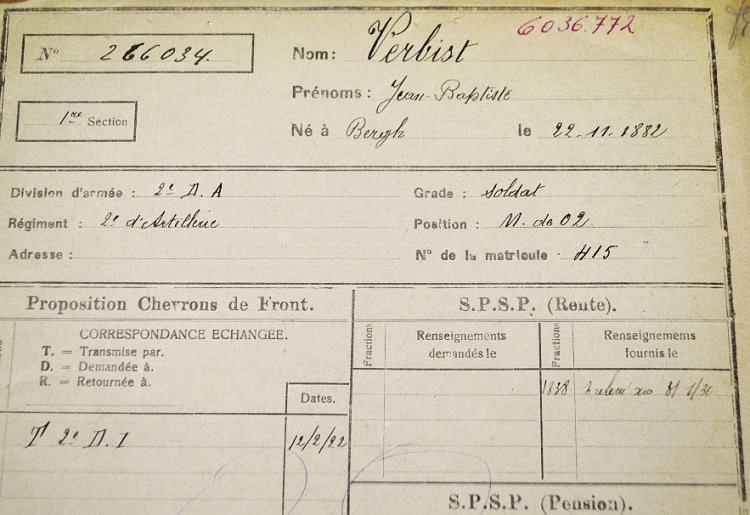 6036.772
N° 266034. Nom: Verbist
Prénoms: Jean-Baptiste
1re Section
Né à Bergh le 22-11-1882
Division d'armée: 2e D.A Grade: soldat
Régiment: 2e d'Artillerie Position: M. de 02
Adresse: N° de la matricule 415
Proposition Chevrons de Front. S.P.S.P. (Rente).
CORRESPONDANCE ECHANGEE. Fractions Renseignements demandés le Fractions Renseignements fournis le
T. = Transmise par.
D. = Demandée à.
R. = Retournée à.
Dates.
1638
T 2e D.I 12/2/22
S.P.S.P. (Pension).